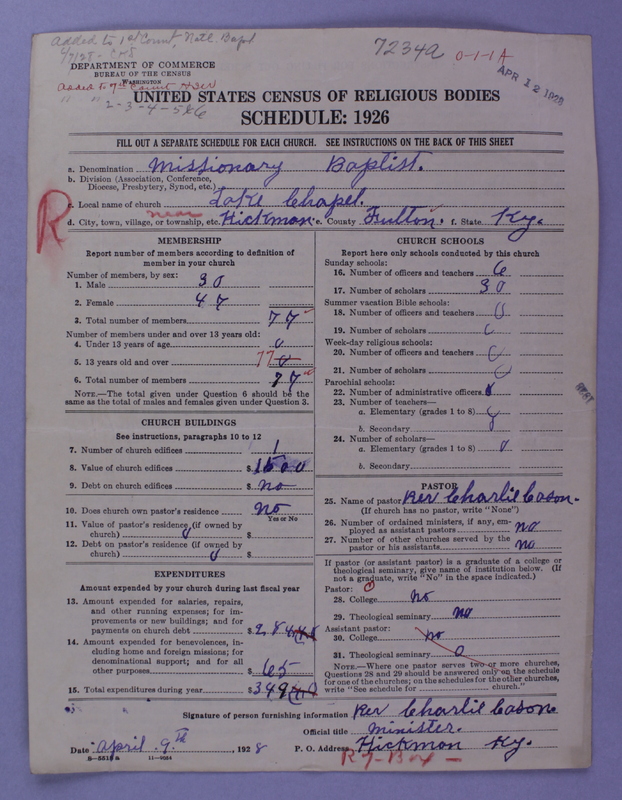 Added to 1st Count, Natl. Bapt
7234a
0-1-1A
APR 12 1928
DEPARTMENT OF COMMERCE
BUREAU OF THE CENSUS
WASHINGTON
Added to 7th Count
" " 2-3-4-5&6
UNITED STATES CENSUS OF RELIGIOUS BODIES
SCHEDULE: 1926
FILL OUT A SEPARATE SCHEDULE FOR EACH CHURCH. SEE INSTRUCTIONS ON THE BACK OF THIS SHEET
a. Denomination Missionary Baptist.
b. Division (Association, Conference,
Diocese, Presbytery, Synod, etc.)
c. Local name of church Lake Chapel.
R
near
d. City, town, village, or township, etc. Hickman. e. County Fulton. f. State Ky.
MEMBERSHIP
Report number of members according to definition of
member in your church
Number of members, by sex:
1. Male 30
2. Female 47
3. Total number of members 77
Number of members under and over 13 years old:
4. Under 13 years of age 0
5. 13 years old and over 77 0
6. Total number of members 77
NOTE.—The total given under Question 6 should be the
same as the total of males and females given under Question 3.
CHURCH BUILDINGS
See instructions, paragraphs 10 to 12
7. Number of church edifices 1
8. Value of church edifices $ 1500
9. Debt on church edifices $ no
10. Does church own pastor's residence no
Yes or No
11. Value of pastor's residence (if owned by
church) 0 $
12. Debt on pastor's residence (if owned by
church) 0 $
EXPENDITURES
Amount expended by your church during last fiscal year
13. Amount expended for salaries, repairs,
and other running expenses; for im-
provements or new buildings; and for
payments on church debt $ 284
14. Amount expended for benevolences, in-
cluding home and foreign missions; for
denominational support; and for all
other purposes $ 65
15. Total expenditures during year $ 349
CHURCH SCHOOLS
Report here only schools conducted by this church
Sunday schools:
16. Number of officers and teachers 6
17. Number of scholars 30
Summer vacation Bible schools:
18. Number of officers and teachers 0
19. Number of scholars 0
Week-day religious schools:
20. Number of officers and teachers 0
21. Number of scholars 0
Parochial schools:
22. Number of administrative officers 0
23. Number of teachers—
a. Elementary (grades 1 to 8) 0
b. Secondary 0
24. Number of scholars—
a. Elementary (grades 1 to 8) 0
b. Secondary
PASTOR
25. Name of pastor Rev Charlie Cason-
(If church has no pastor, write "None")
26. Number of ordained ministers, if any, em-
ployed as assistant pastors no
27. Number of other churches served by the
pastor or his assistants no
If pastor (or assistant pastor) is a graduate of a college or
theological seminary, give name of institution below. (If
not a graduate, write "No" in the space indicated.)
Pastor:
28. College no
29. Theological seminary no
Assistant pastor:
30. College no
31. Theological seminary 0
NOTE.—Where one pastor serves two or more churches,
Questions 28 and 29 should be answered only on the schedule
for one of the churches; on the schedules for the other churches,
write "See schedule for church."
Signature of person furnishing information Rev Charlie Cason
Official title Minister.
Date April 9th, 1928 P. O. Address Hickmon Ky.
8-551a 11-9554